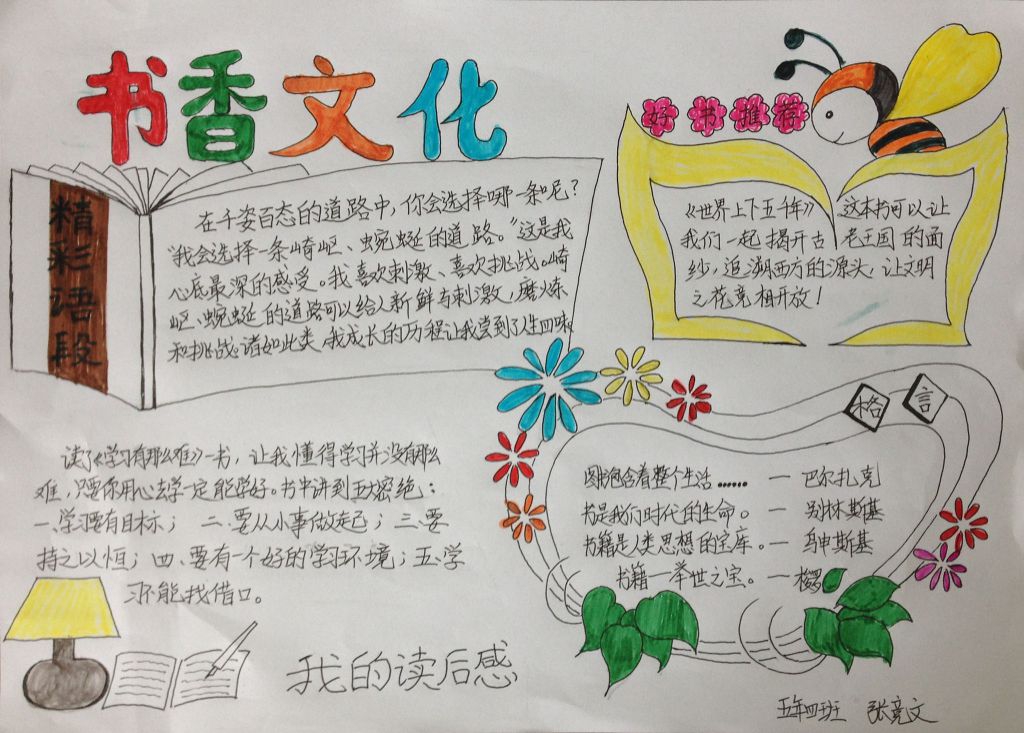 书香文化
精彩语段
在千姿百态的道路中,你会选择哪一条呢?
“我会选择一条崎岖、蜿蜒的道路。”这是我
心底最深的感受。我喜欢刺激、喜欢挑战。崎
岖、蜿蜒的道路可以给人新鲜与刺激,磨炼
和挑战。诸如此类,我成长的历程让我尝到了人生四味
好书推荐
《世界上下五千年》这本书可以让
我们一起揭开古老王国的面
纱,追溯西方的源头,让文明
之花竞相开放!
读了《学习有那么难》一书,让我懂得学习并没有那么
难,只要你用心去学一定能学好。书中讲到五大密绝:
一、学习要有目标;二、要从小事做起;三、要
持之以恒;四、要有一个好的学习环境;五、学
习不能找借口。
我的读后感
格言
图书包含着整个生活……—巴尔扎克
书是我们时代的生命。—别林斯基
书籍是人类思想的宝库。—乌申斯基
书籍—举世之宝。—梭罗
五年四班 张竞文